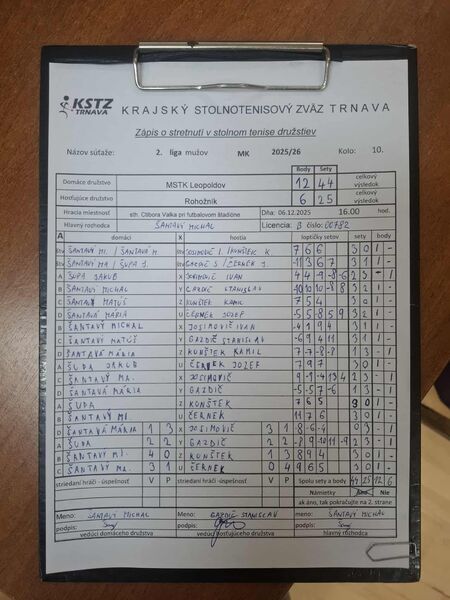 KSTZ
TRNAVA
KRAJSKÝ STOLNOTENISOVÝ ZVÄZ TRNAVA
Zápis o stretnutí v stolnom tenise družstiev
Názov súťaže: 2. liga mužov MK 2025/26 Kolo: 10.
Body Sety
Domáce družstvo MSTK Leopoldov 12 44 celkový výsledok
Hosťujúce družstvo Rohožník 6 25 celkový výsledok
Hracia miestnosť sth. Ctibora Valka pri futbalovom štadióne Dňa: 06.12.2025 16.00 hod.
Hlavný rozhodca ŠANTAVÝ MICHAL Licencia: B číslo: 00782
A domáci X hostia loptičky setov sety body
ŠANTAVÝ MI. / ŠANTAVÝ M. JOSIMOVIČ I. / KONŠTEK K. 7 6 6 3 0 1 -
ŠANTAVÝ MA / ŠUPA J. GAZDIČ S / ČERNEK J. -11 3 6 7 3 1 1 -
A ŠUPA JAKUB X JOSIMOVIČ IVAN 4 4 -9 -8 -6 2 3 - 1
B ŠANTAVÝ MICHAL Y GAZDIČ STANISLAV
C ŠANTAVÝ MATÚŠ Z KONŠTEK KAMIL 7 5 4 3 0 1 -
D ŠANTAVÁ MÁRIA U ČERNEK JOZEF -5 5 8 5 9 3 2 1 -
B ŠANTAVÝ MICHAL X JOSIMOVIČ IVAN -4 1 9 4 3 1 1 -
C ŠANTAVÝ MATÚŠ Y GAZDIČ STANISLAV -6 9 4 11 3 1 1 -
D ŠANTAVÁ MÁRIA Z KONŠTEK KAMIL 7 -7 -8 -8 1 3 - 1
A ŠUPA JAKUB U ČERNEK JOZEF 7 9 7 3 0 1 -
C ŠANTAVÝ MA. X JOSIMOVIČ
D ŠANTAVÁ MÁRIA Y GAZDIČ -5 -5 7 -6 1 3 - 1
A ŠUPA Z KONŠTEK 7 6 5 3 0 1 -
B ŠANTAVÝ MI. U ČERNEK 11 7 6 3 0 1 -
D ŠANTAVÁ MÁRIA 1 3 X JOSIMOVIČ 3 1
A ŠUPA 2 2 Y GAZDIČ 2 2
B ŠANTAVÝ MI. 4 0 Z KONŠTEK 1 3 8 9 4 3 0 1 -
C ŠANTAVÝ MA. 3 1 U ČERNEK 0 4 9 6 5 3 0 1 -
striedaní hráči - úspešnosť V P striedaní hráči - úspešnosť V P Spolu sety a body 44 25 12 6
Námietky Áno Nie
ak áno, tak pokračujte na 2. strane
Meno: ŠANTAVÝ MICHAL Meno: GAZDIČ STANISLAV Meno: ŠANTAVÝ MICHAL
podpis: podpis: podpis:
vedúci domáceho družstva vedúci hosťujúceho družstva hlavný rozhodca